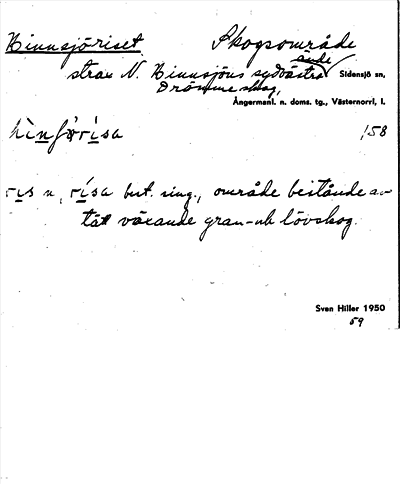 Binnsjöriset. Skogsområde
strax N. Binnsjöns sydvästra ände Sidensjö sn,
Drömme skog,
Ångermanl. n. doms. tg., Västernorrl. l.
158
ris n, rísa best. sing., område bestående av
tät växande gran- och lövskog.
Sven Hiller 1950
59